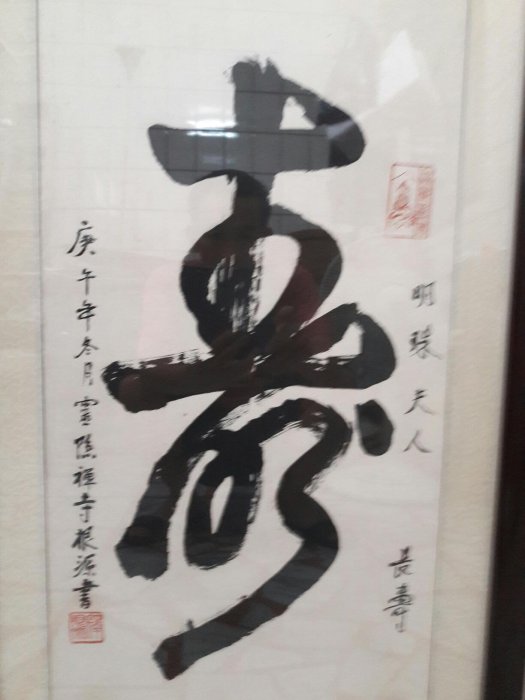 明珠夫人
長壽
壽
庚午年冬月靈隱禪寺根源書